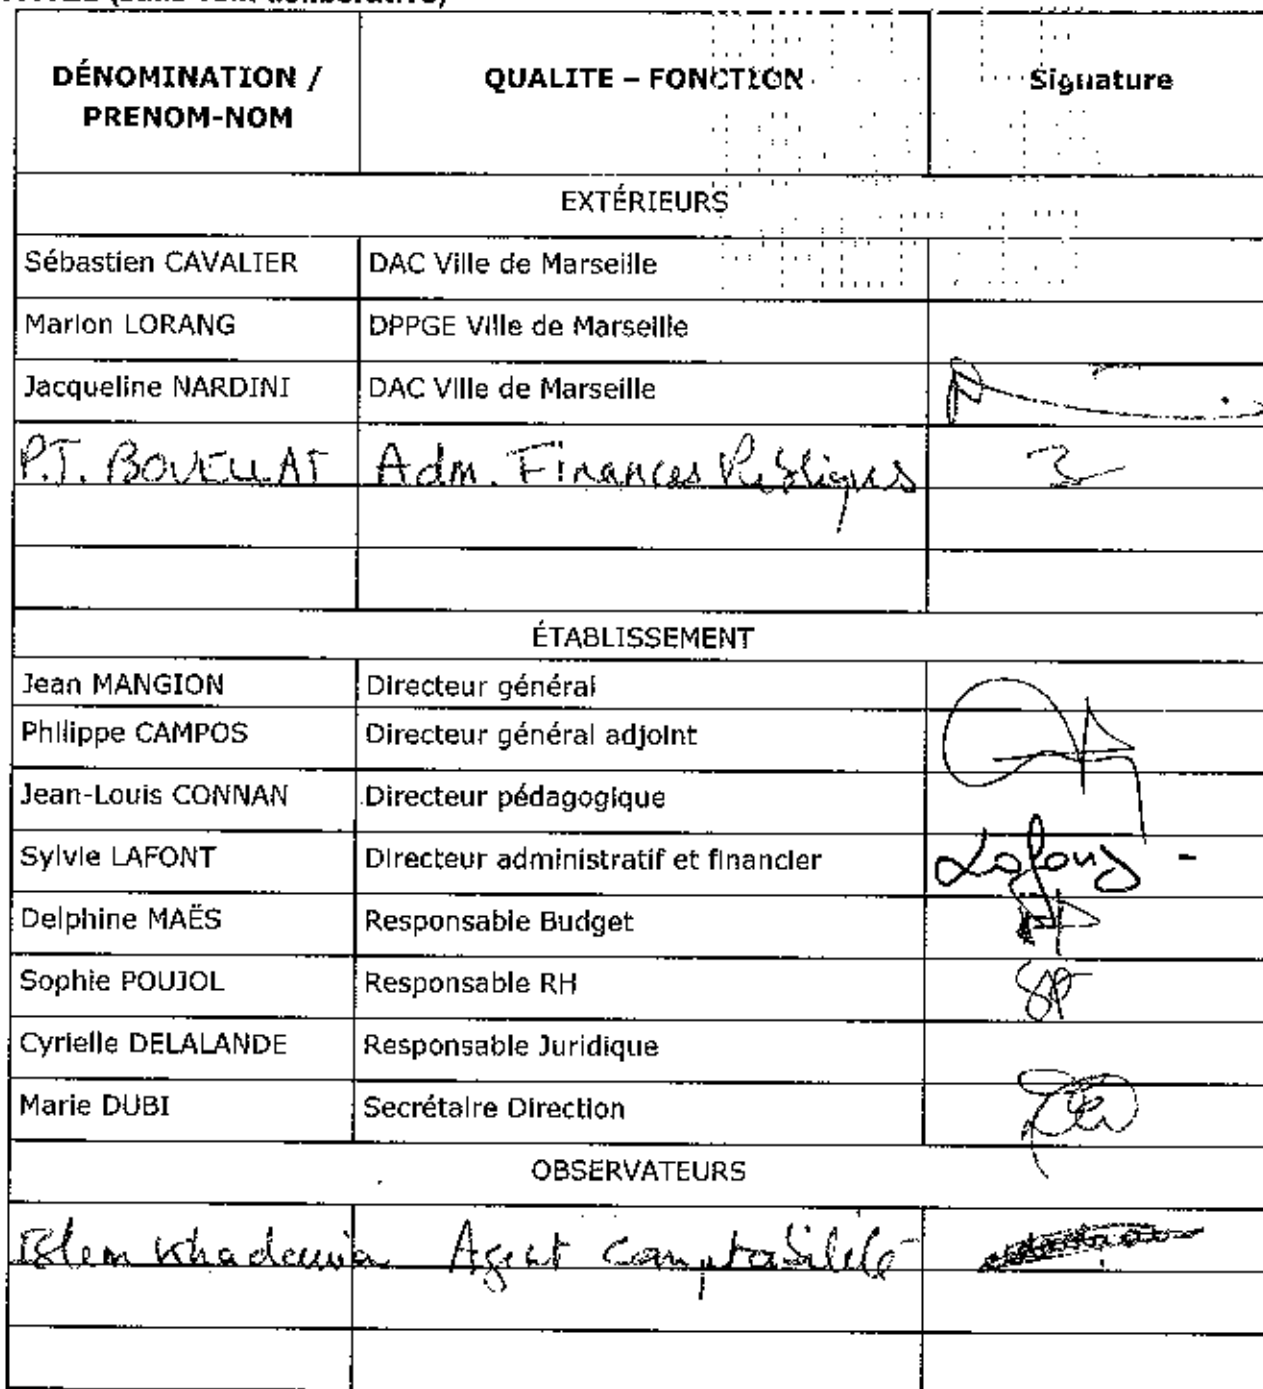 DÉNOMINATION /
PRENOM-NOM
QUALITE – FONCTION
Signature
EXTÉRIEURS
Sébastien CAVALIER DAC Ville de Marseille
Marion LORANG DPPGE Ville de Marseille
Jacqueline NARDINI DAC Ville de Marseille
P.J. BOVELLAT Adm. Finances Publiques
ÉTABLISSEMENT
Jean MANGION Directeur général
Philippe CAMPOS Directeur général adjoint
Jean-Louis CONNAN Directeur pédagogique
Sylvie LAFONT Directeur administratif et financier
Delphine MAËS Responsable Budget
Sophie POUJOL Responsable RH
Cyrielle DELALANDE Responsable Juridique
Marie DUBI Secrétaire Direction
OBSERVATEURS
Agent Comptabilité